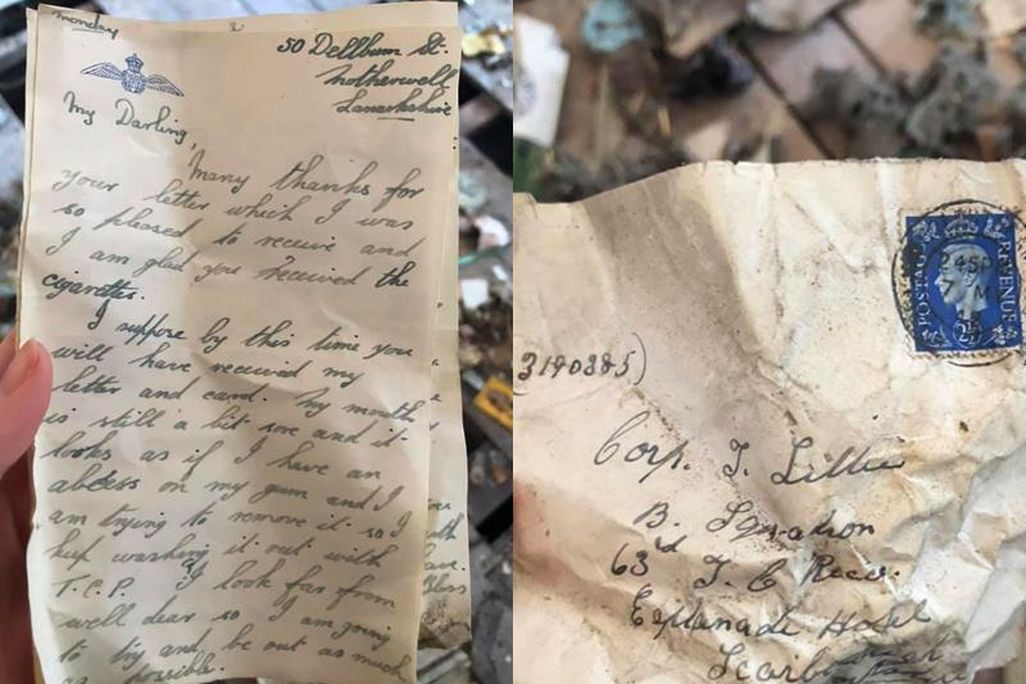 Monday
50 Dellburn St.
Motherwell
Lanarkshire
My Darling,
Many thanks for
your letter which I was
so pleased to receive and
I am glad you received the
cigarettes.
I suppose by this time you
will have received my
letter and card. My mouth
is still a bit sore and it
looks as if I have an
abcess on my gum and I
am trying to remove it so I
keep washing it out with
T.C.P. I look far from
well dear so I am going
to try and be out as much
as possible.
POSTAGE
REVENUE
2½
3190385)
Corp. T. Lillie
B. Squadron
63rd T. C Recc.
Esplanade Hotel